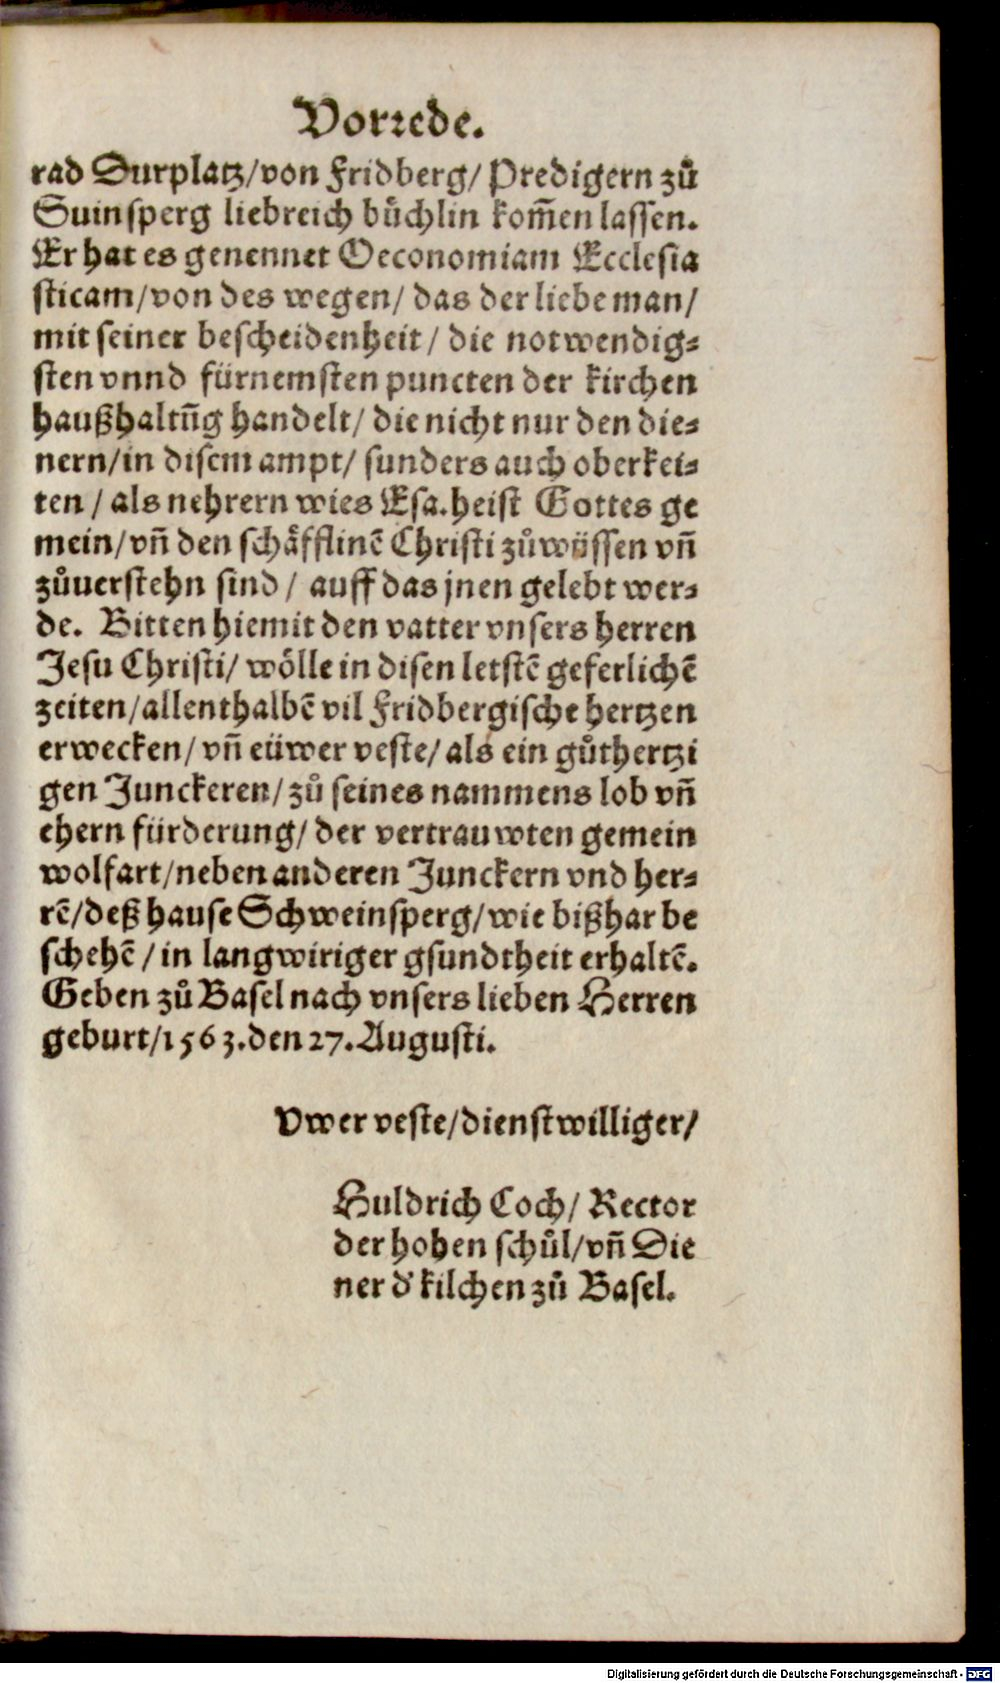 Vorrede.
rad Durplatz/von Fridberg/ Predigern zů
Suinsperg liebreich bůchlin kom̄en lassen.
Er hat es genennet Oeconomiam Ecclesia
sticam/von des wegen/ das der liebe man/
mit seiner bescheidenheit/ die notwendig⸗
sten vnnd fürnemsten puncten der kirchen
haußhaltūg handelt/ die nicht nur den die⸗
nern/in disem ampt/ sunders auch oberkei⸗
ten / als nehrern wies Esa. heist Gottes ge
mein/vn̄ den schäfflinē Christi zůwüssen vn̄
zůuerstehn sind / auff das jnen gelebt wer⸗
de. Bitten hiemit den vatter vnsers herren
Jesu Christi/ wölle in disen letstē geferlichē
zeiten/allenthalbē vil Fridbergische hertzen
erwecken/ vn̄ eüwer veste/ als ein gůthertzi
gen Junckeren/ zů seines nammens lob vn̄
ehern fürderung/ der vertrauwten gemein
wolfart/neben anderen Junckern vnd her⸗
rē/deß hause Schweinsperg/wie bißhar be
schehē / in langwiriger gsundtheit erhaltē.
Geben zů Basel nach vnsers lieben Herren
geburt/1563.den 27.Augusti.
Vwer veste/dienstwilliger/
Huldrich Coch/ Rector
der hohen schůl/vn̄ Die
ner d' kilchen zů Basel.
Digitalisierung gefördert durch die Deutsche Forschungsgemeinschaft - DFG